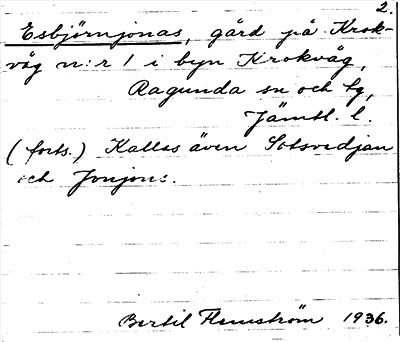 2.
Esbjörnjonas, gård på Krok-
våg n:r 1 i byn Krokvåg,
Ragunda sn och tg,
Jämtl. l.
(forts.) Kallas även Sotsvedjan
och Jonjons.
Bertil Flemström 1936.